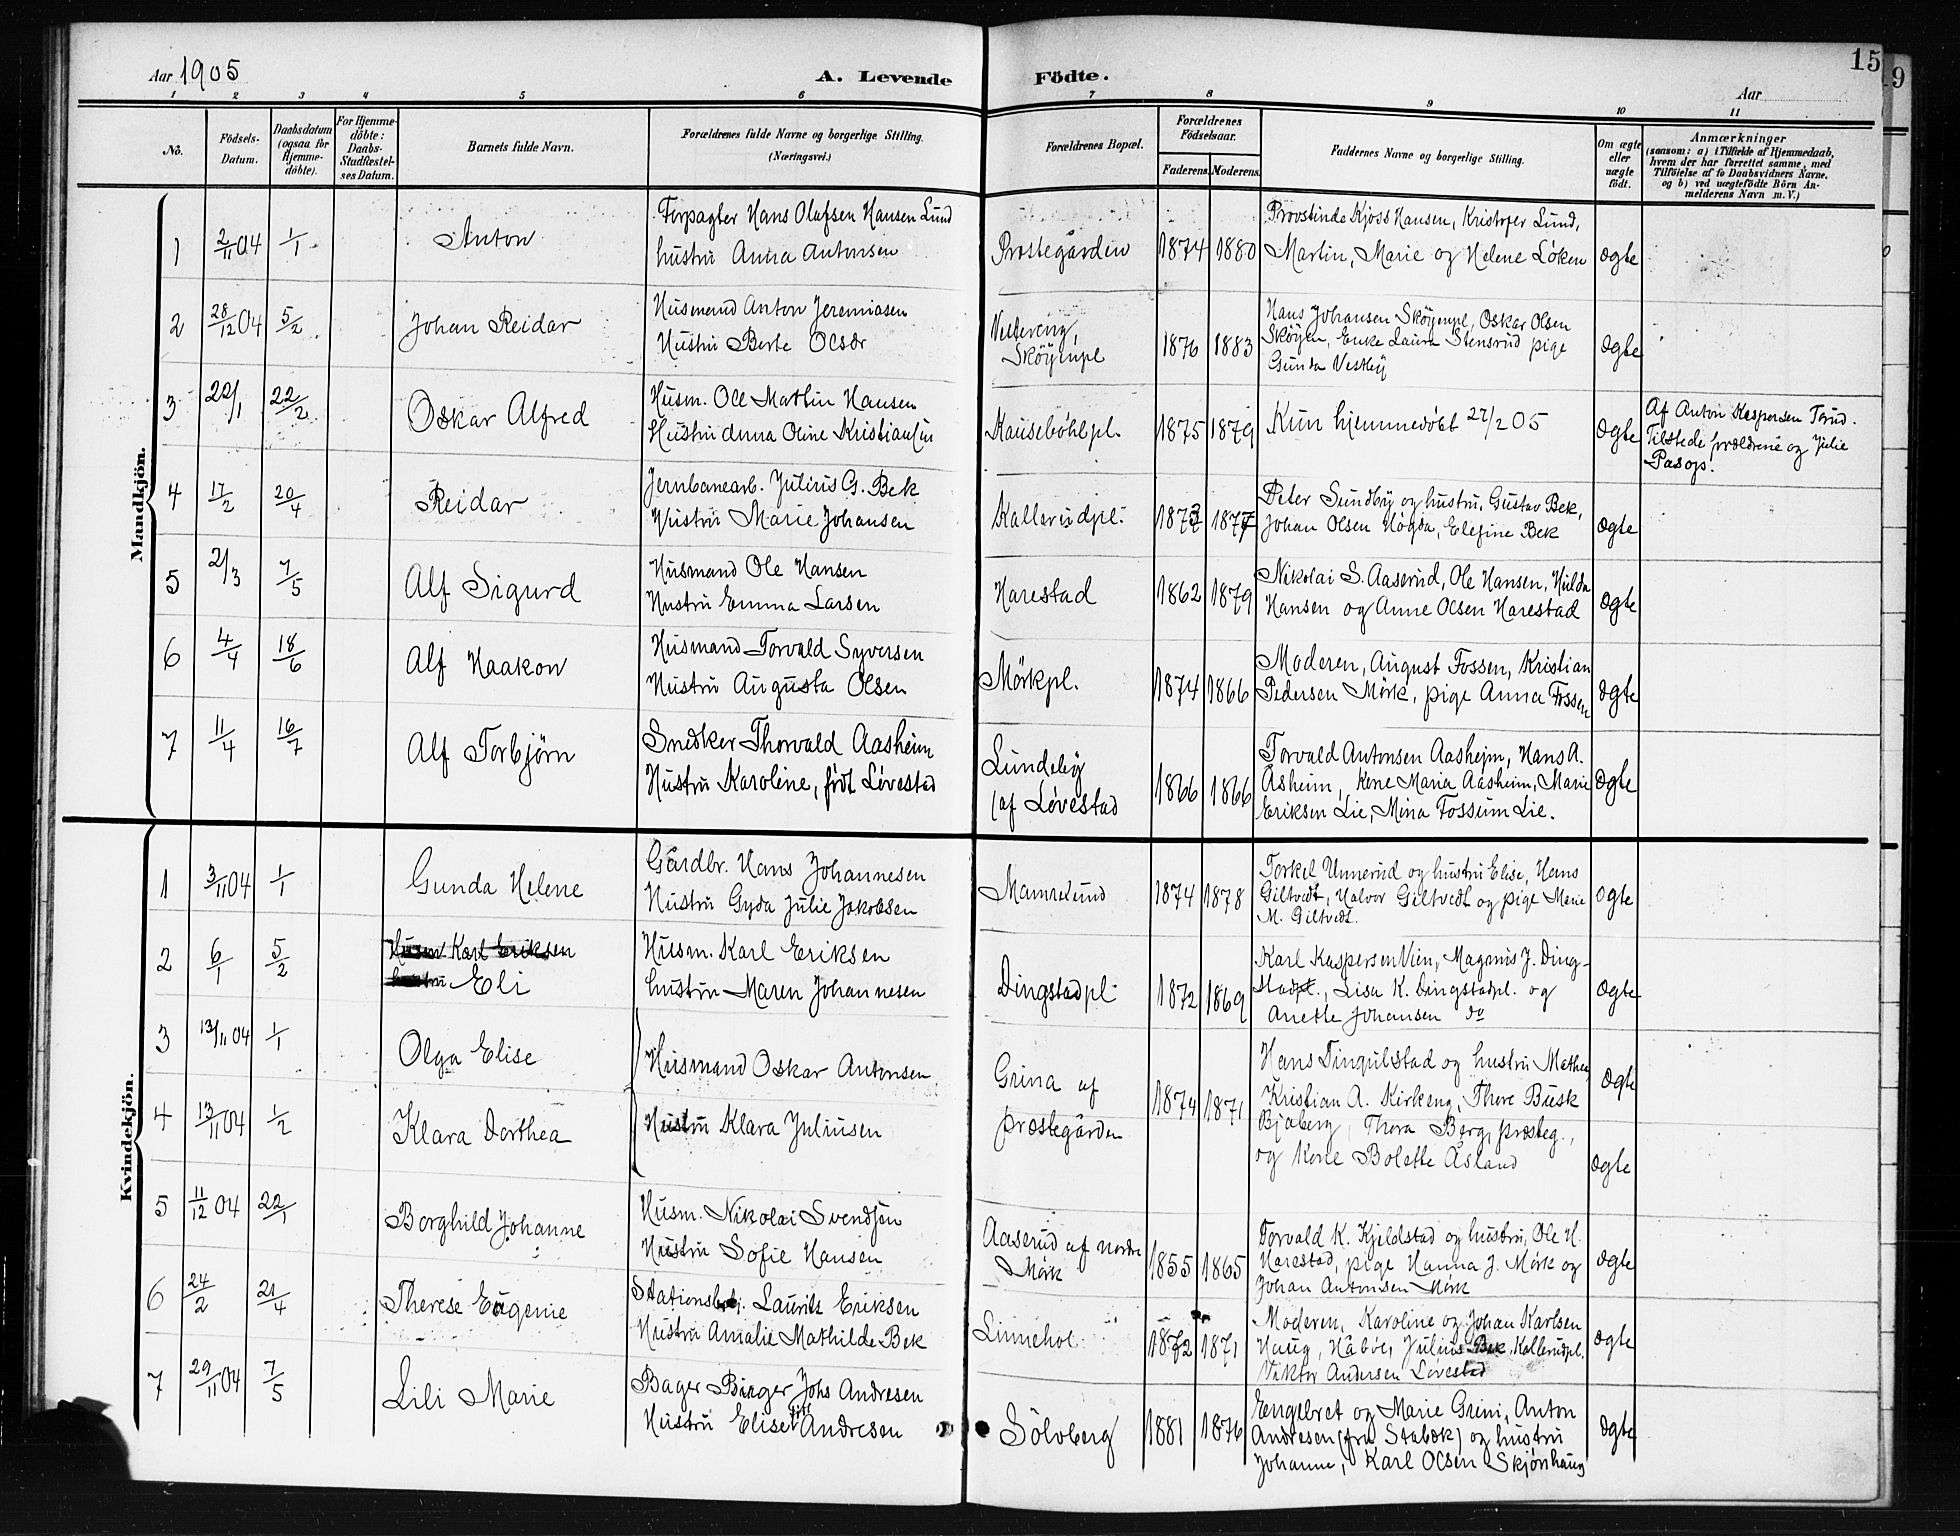 Aar 1905
A. Levende Födte.
15
9
Aar
1 2 3 4 5 6 7 8 9 10 11
No.
Födsels-
Datum.
Daabsdatum
(ogsaa for
Hjemme-
döbte).
For Hjemme-
döbte:
Daabs-
Stadfæstel-
ses Datum.
Barnets fulde Navn.
Forældrenes fulde Navne og borgerlige Stilling.
(Næringsvei.)
Forældrenes Bopæl.
Forældrenes
Födselsaar.
Faderens. Moderens.
Faddernes Navne og borgerlige Stilling.
Om ægte
eller
uægte
födt.
Anmærkninger
(saasom: a) i Tilfælde af Hjemmedaab,
hvem der har forrettet samme, med
Tilföielse af to Daabsvidners Navne,
og b) ved uægtefödte Börn An-
melderens Navn m. V.)
Mandkjön.
1 2/11 04 1/1 Anton
Forpagter Hans Olafsen Hansen Lund
hustru Anna Antonsen
Prestegården 1874 1880
Provstinde Kjoss Hansen, Kristofer Lund,
Martin, Marie og Helene Løken
ægte
2 28/12 04 5/2 Johan Reidar
Husmand Anton Jeremiasen
Hustru Berte Olsdr
Vestereng,
Skøyenpl 1876 1883
Hans Johansen Skøyenpl, Oskar Olsen
Skøyen, Enke Laura Stensrud pige
Gunda Vestby
ægte
3 22/1 22/2 Oskar Alfred
Husm. Ole Martin Hansen
Hustru Anna Oline Kristiansen
Hausebøhlpl. 1875 1879
Kun hjemmedøbt 22/2 05
ægte
Af Anton Kaspersen Terud.
Tilstede forældrene og Julie
Pasop.
4 17/2 20/4 Reidar
Jernbanearb. Julius G. Bek
Hustru Marie Johansen
Kallerudpl. 1873 1877
Peter Sundby og hustru, Gustav Bek,
Johan Olsen Høgda, Elefine Bek
ægte
5 21/3 7/5 Alf Sigurd
Husmand Ole Hansen
Hustru Emma Larsen
Harestad 1862 1879
Nikolai S. Aaserud, Ole Hansen, Hulda
Hansen og Anne Olsen Harestad
ægte
6 4/4 18/6 Alf Haakon
Husmand Torvald Syversen
Hustru Augusta Olsen
Mørkpl. 1874 1866
Moderen, August Fossen, Kristian
Pedersen Mørk, pige Anna Fossen
ægte
7 11/4 16/7 Alf Torbjørn
Snedker Thorvald Aasheim
Hustru Karoline, født Løvestad
Lundeby
(af Løvestad 1866 1866
Torvald Antonsen Aasheim, Hans A.
Åsheim, Kone Maria Aasheim, Marie
Eriksen Lie, Mina Fossum Lie.
ægte
Kvindekjön.
1 3/11 04 1/1 Gunda Helene
Gårdbr. Hans Johannesen
Hustru Gyda Julie Jakobsen
Mamrelund 1874 1878
Torkel Unnerud og hustru Elise, Hans
Giltvedt, Halvor Giltvedt og pige Marie
M. Giltvedt.
ægte
2 6/1 5/2 Husm Karl Eriksen
hustru Eli
Husm. Karl Eriksen
hustru Maren Johannesen
Dingstadpl 1872 1869
Karl Kaspersen Vien, Magnus J. Ding-
stadpl., Lisa K. Dingstadpl. og
Anette Johansen do
ægte
3 13/11 04 1/1 Olga Elise
Husmand Oskar Antonsen
Grina af
præstegården 1874 1871
Hans Tingulstad og hustru Mathea,
Kristian A. Kirkeng, There Busk
ægte
4 13/11 04 1/2 Klara Dorthea
Hustru Klara Juliusen
Bjaberg, Thora Berg, præsteg.,
og Kone Bolette Åsland
ægte
5 11/12 04 22/1 Borghild Johanne
Husm. Nikolai Svendsen
Hustru Sofie Hansen
Aaserud af nordre
Mørk 1855 1865
Torvald K. Kjeldstad og hustru, Ole H.
Harestad, pige Hanna J. Mørk og
Johan Antonsen Mørk
ægte
6 24/2 21/4 Therese Eugenie
Laurits Eriksen
Hustru Amalie Mathilde Bek
Linnehol 1872 1871
Moderen, Karoline og Johan Karlsen
Haug, Håbøl, Julius Bek Kallerudpl.
Viktor Andersen Løvestad
ægte
7 29/11 04 7/5 Lili Marie
Bager Birger Johs Andresen
Hustru Elise Andresen
Sölvberg 1881 1876
Engebret og Marie Grini, Anton
Andresen (fra Stabæk) og hustru
Johanne, Karl Olsen Skjønhaug
ægte